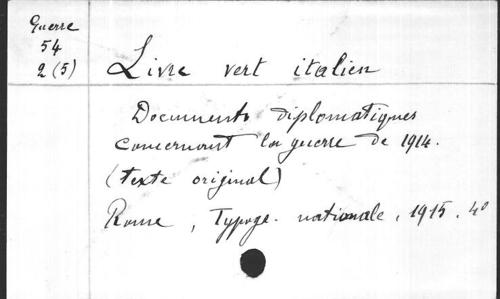 Guerre
54
2 (5)
Livre vert italien
Documents diplomatiques
concernant la guerre de 1914.
(texte original)
Rome, Typogr. nationale, 1915. 4°